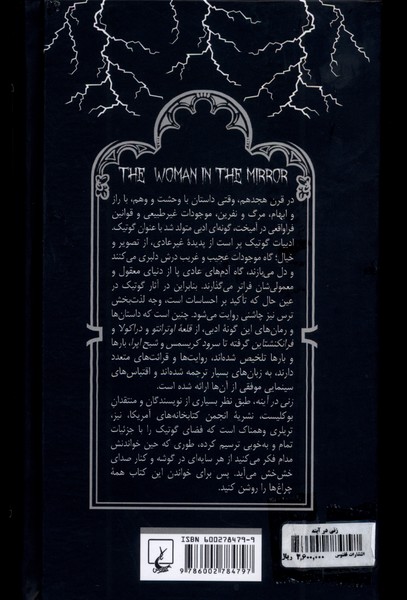 THE WOMAN IN THE MIRROR
در قرن هجدهم، وقتی داستان با وحشت و وهم، با راز
و ابهام، مرگ و نفرین، موجودات غیرطبیعی و قوانین
فراواقعی در آمیخت، گونه‌ای ادبی متولد شد با عنوان گوتیک.
ادبیات گوتیک پر است از پدیدهٔ غیرعادی، از تصویر و
خیال؛ گاه موجودات عجیب و غریب درش دلبری می‌کنند
و دل می‌بازند، گاه آدم‌های عادی پا از دنیای معقول و
معمولی‌شان فراتر می‌گذارند. بنابراین در آثار گوتیک در
عین حال که تأکید بر احساسات است، وجه لذت‌بخش
ترس نیز چاشنی روایت می‌شود. چنین است که داستان‌ها
و رمان‌های این گونهٔ ادبی، از قلعهٔ اوترانتو و دراکولا و
فرانکنشتاین گرفته تا سرود کریسمس و شبح اپرا، بارها
و بارها تلخیص شده‌اند، روایت‌ها و قرائت‌های متعدد
دارند، به زبان‌های بسیار ترجمه شده‌اند و اقتباس‌های
سینمایی موفقی از آن‌ها ارائه شده است.
زنی در آینه، طبق نظر بسیاری از نویسندگان و منتقدان
بوکلیست، نشریهٔ انجمن کتابخانه‌های آمریکا، نیز،
تریلری وهمناک است که فضای گوتیک را با جزئیات
تمام و به‌خوبی ترسیم کرده، طوری که حین خواندنش
مدام فکر می‌کنید از هر سایه‌ای در گوشه و کنار صدای
خش‌خش می‌آید. پس برای خواندن این کتاب همهٔ
چراغ‌ها را روشن کنید.
ISBN 600278479-9
9 786002 784797
زنی در آینه
انتشارات ققنوس
۳,۶۰۰,۰۰۰ ریال